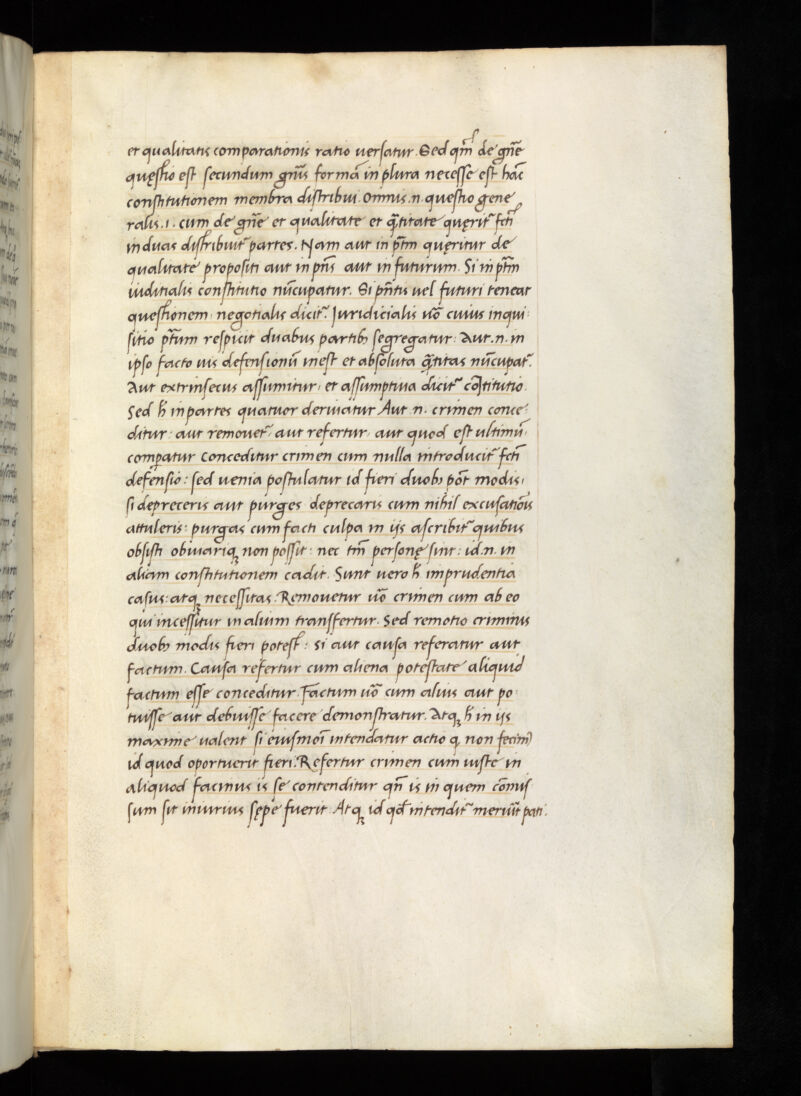 et qualitatis comparationis ratio uersatur. Sed qm̃ de gñe
quęstio est secundum gñis formã in plura necesse est hãc
constitutionem membra distribui. Omnis .n. questio gene
ralis .i. cum de gñe et qualitate et q̃titate quęrit᷑ fcti
in duas distribuit᷑ partes. Nam aut in p̃tm quęritur de
qualitate propositi aut in pñs aut in futurum. Si in p̃tm
iuditialis constitutio nũcupatur. Si pñtis uel futuri teneat
questionem: negotialis dicit᷑. Iuridicialis uõ cuius inqui:
sitio p̃tum respicit duabus partibꝫ segregatur: Aut .n. in
ipso facto uis defensionũ inest et absoluta q̃titas nũcupat᷑.
Aut extrinsecus assumitur: et assumptiua dicit᷑ cõstitutio.
Sed h̃ in partes quatuor deriuatur Aut .n. crimen conce:
ditur: aut remouet᷑: aut refertur: aut quod est ultimũ:
comp̱atur Conceditur crimen cum nulla introducit᷑ fcti
defensio: sed uenia postulatur id fieri duobꝫ põt modis:
si depreceris aut purges deprecaris cum nihil excusatiõis
attuleris: purgas cum facti culpa in ijs ascribit᷑ quibus
obsisti obuiariqꝫ non possit: nec tm̃ personę sint: id .n. in
aliam constitutionem cadit. Sunt uero h̃ imprudentia
casus: atqꝫ necessitas. Remouetur uõ crimen cum ab eo
qui incessitur in alium transffertur. Sed remotio criminis
duobꝫ modis fieri potest: si aut causa referatur aut
factum. Causa refertur cum aliena potestate aliquid
factum esse conceditur. Factum uõ cum alius aut po
tuisse aut debuisse facere demonstratur. Atqꝫ h̃ in ijs
maxime ualent si eiusmõi intendatur actio q non fecim᷒
id quod oportuerit fieri. Refertur crimen cum iuste in
aliquod facinus is se contenditur qñ is in quem cõmis
sum sit iniurius sępe fuerit. Atqꝫ id qđ intendit᷑ meruit pati.